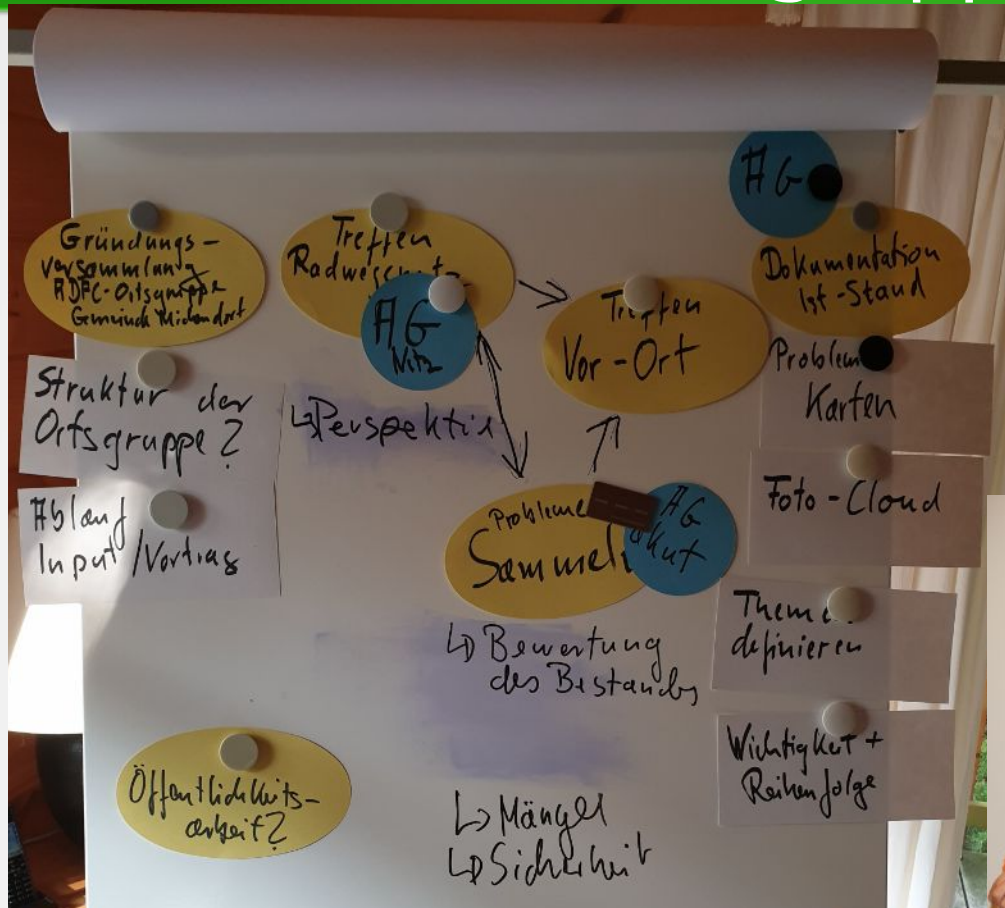 Gründungs-
versammlung
ADFC-Ortsgruppe
Gemeinde Michendorf
Struktur der
Ortsgruppe?
Ablauf
Input/Vortrag
Treffen
AG
Netz
↳ Perspektive
Treffen
Vor-Ort
Probleme
Sammeln
AG
akut
↳ Bewertung
des Bestandes
↳ Mängel
↳ Sicherheit
Öffentlichkeits-
arbeit?
AG
Dokumentation
Ist-Stand
Problem
Karten
Foto-Cloud
Themen
definieren
Wichtigkeit +
Reihenfolge